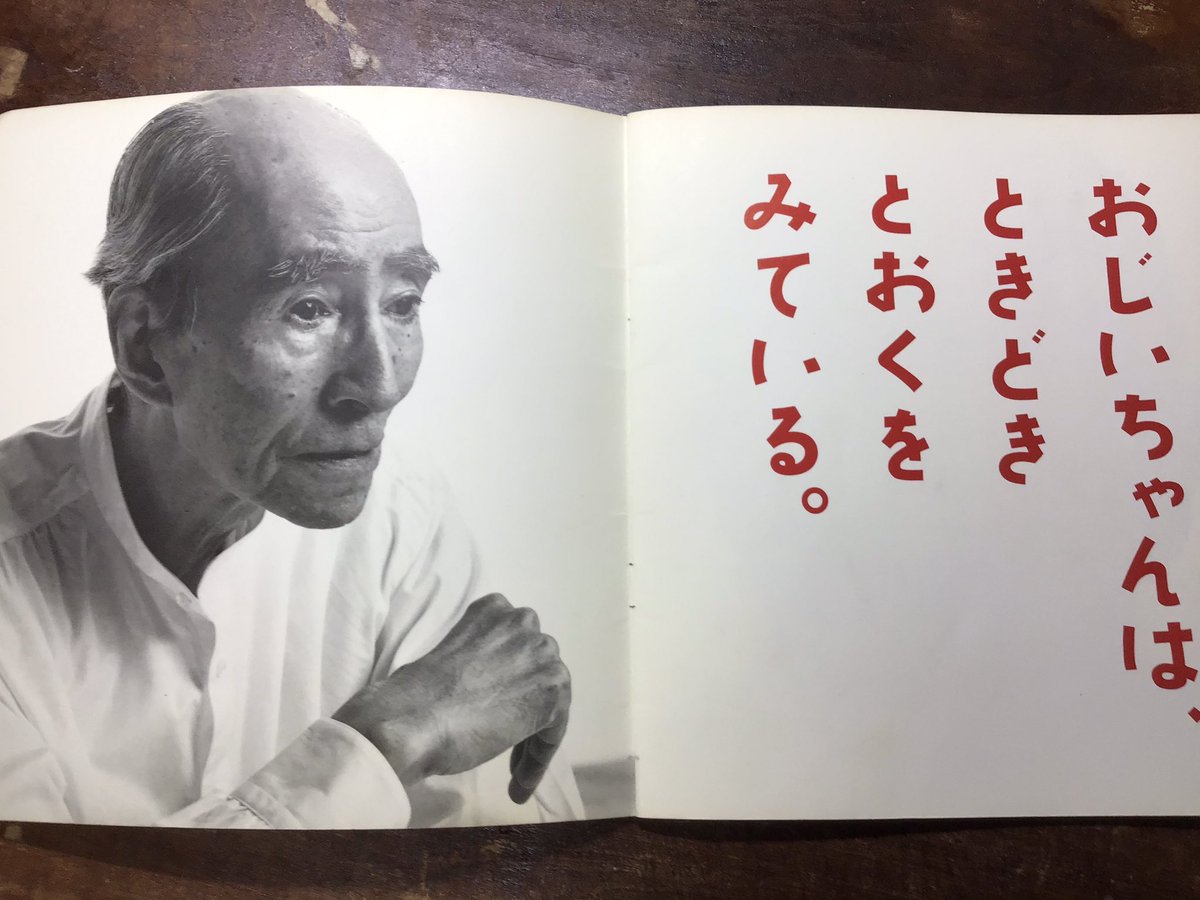 おじいちゃんは、
ときどき
とおくを
みている。